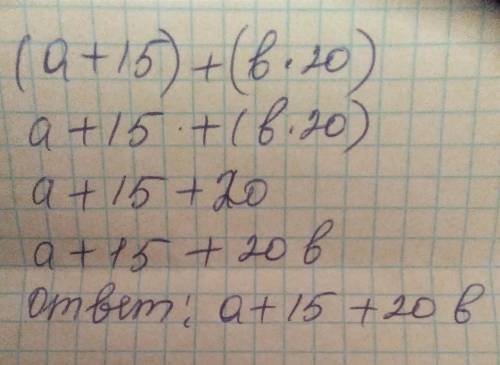 (а+15)+(в·20)
а+15·+(в·20)
а+15+20
а+15+20в
ответ: а+15+20в